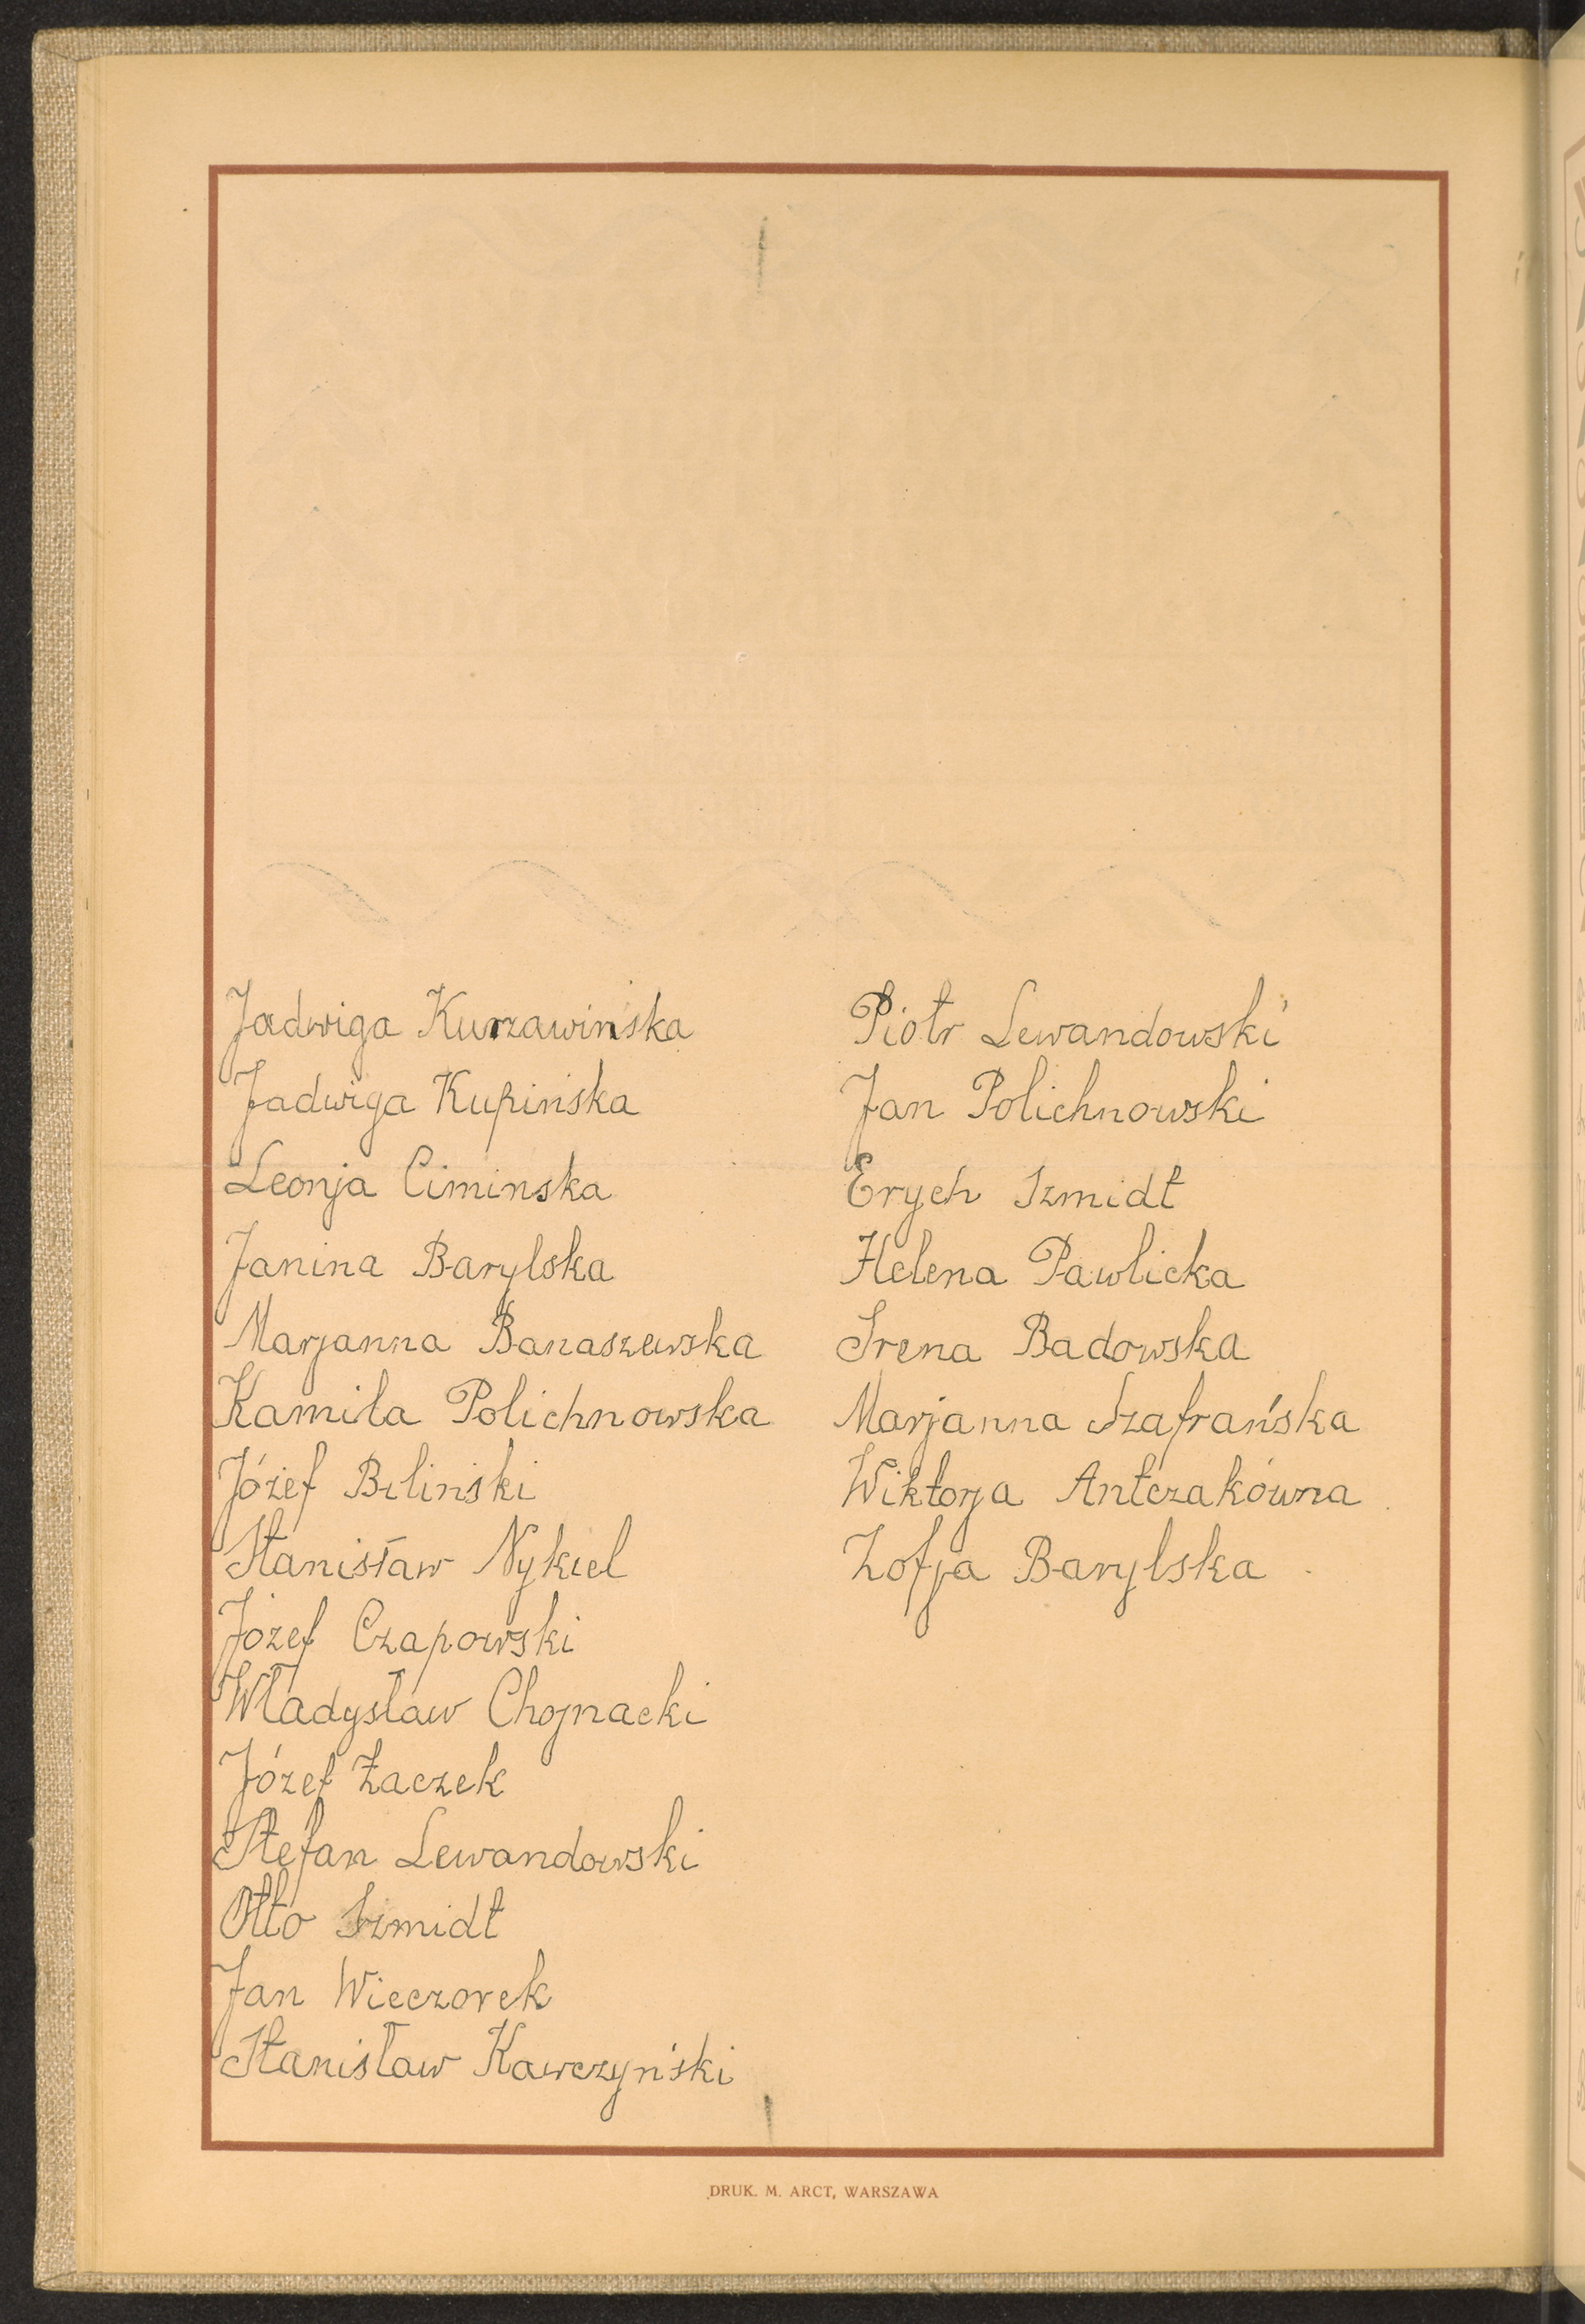 Jadwiga Kurzawińska
Jadwiga Kupińska
Leonja Ciminska
Janina Barylska
Marjanna Banaszewska
Kamila Polichnowska
Józef Biliński
Stanisław Nykiel
Józef Czapowski
Władysław Chojnacki
Józef Żaczek
Stefan Lewandowski
Otto Szmidt
Jan Wieczorek
Stanisław Kawczyński
Piotr Lewandowski
Jan Polichnowski
Erych Szmidt
Helena Pawlicka
Irena Badowska
Marjanna Szafrańska
Wiktorja Antczakówna
Zofja Barylska
DRUK. M. ARCT, WARSZAWA